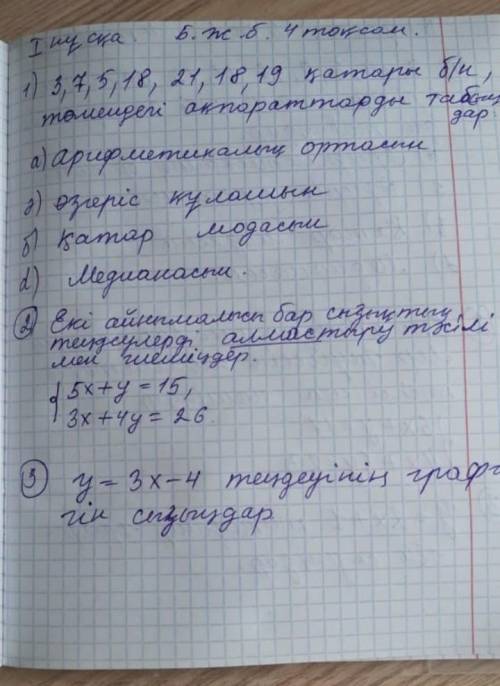 I нұсқа Б.Ж.Б. 4 тоқсан.
1) 3, 7, 5, 18, 21, 18, 19 қатары б/н,
төмендегі ақпараттарды табың
дар.
а) арифметикалық ортасын
ә) өзгеріс құлашын
б) Қатар модасын
в) Медианасын.
2 Екі айнымалысы бар сызықтық
теңдеулерді алмастыру тәсілі
мен шешіңдер.
{ 5x+y=15,
3x+4y=26
3 y=3x-4 теңдеуінің графи
гін сызыңдар